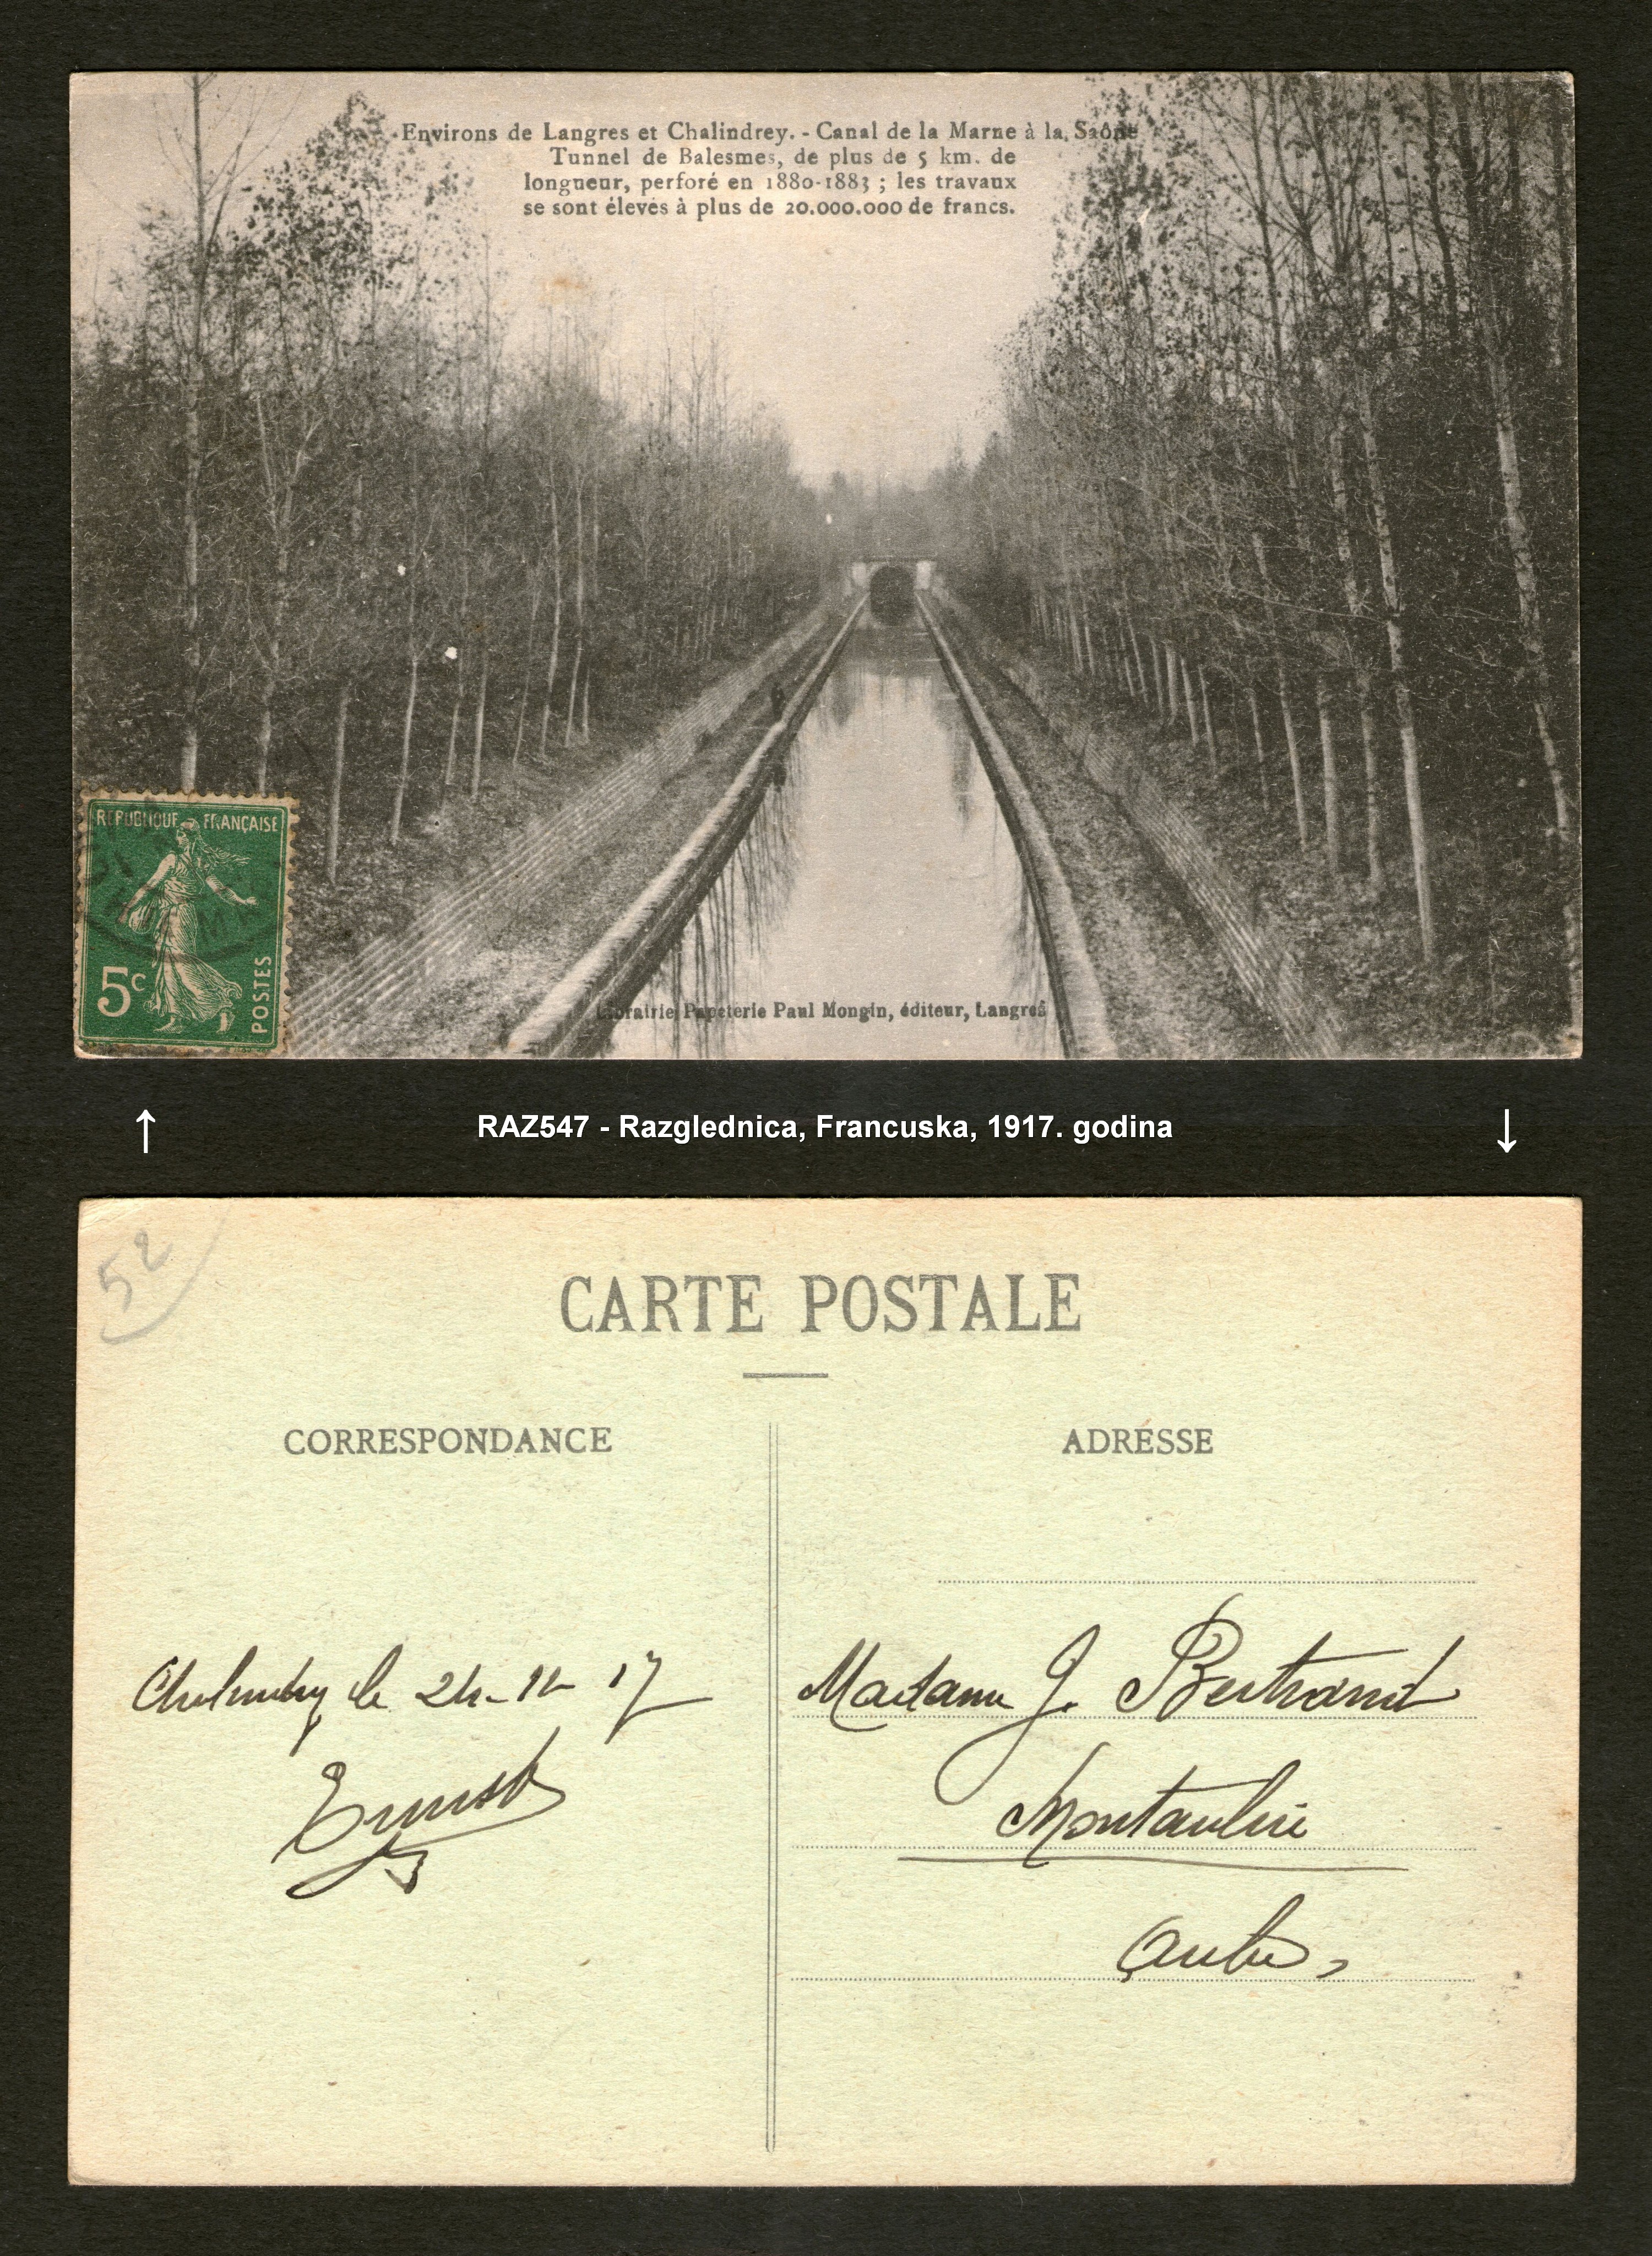 Environs de Langres et Chalindrey. - Canal de la Marne à la Saône
Tunnel de Balesmes, de plus de 5 km. de
longueur, perforé en 1880-1883 ; les travaux
se sont élevés à plus de 20.000.000 de francs.
REPUBLIQUE FRANÇAISE
5c
POSTES
Librairie Papeterie Paul Mongin, éditeur, Langres
↑ RAZ547 - Razglednica, Francuska, 1917. godina ↓
52
CARTE POSTALE
CORRESPONDANCE
ADRESSE
Chalindrey le 24-12-17
Ernest
Madame J. Bertrand
Montaulin
Aube